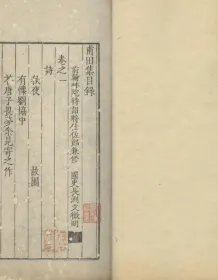 甫田集目錄
前翰林院待詔將仕佐郎兼修 國史長洲文徵明
卷之一
詩
秋夜 故園
有懷劉協中
才唐子畏以余見寄之作